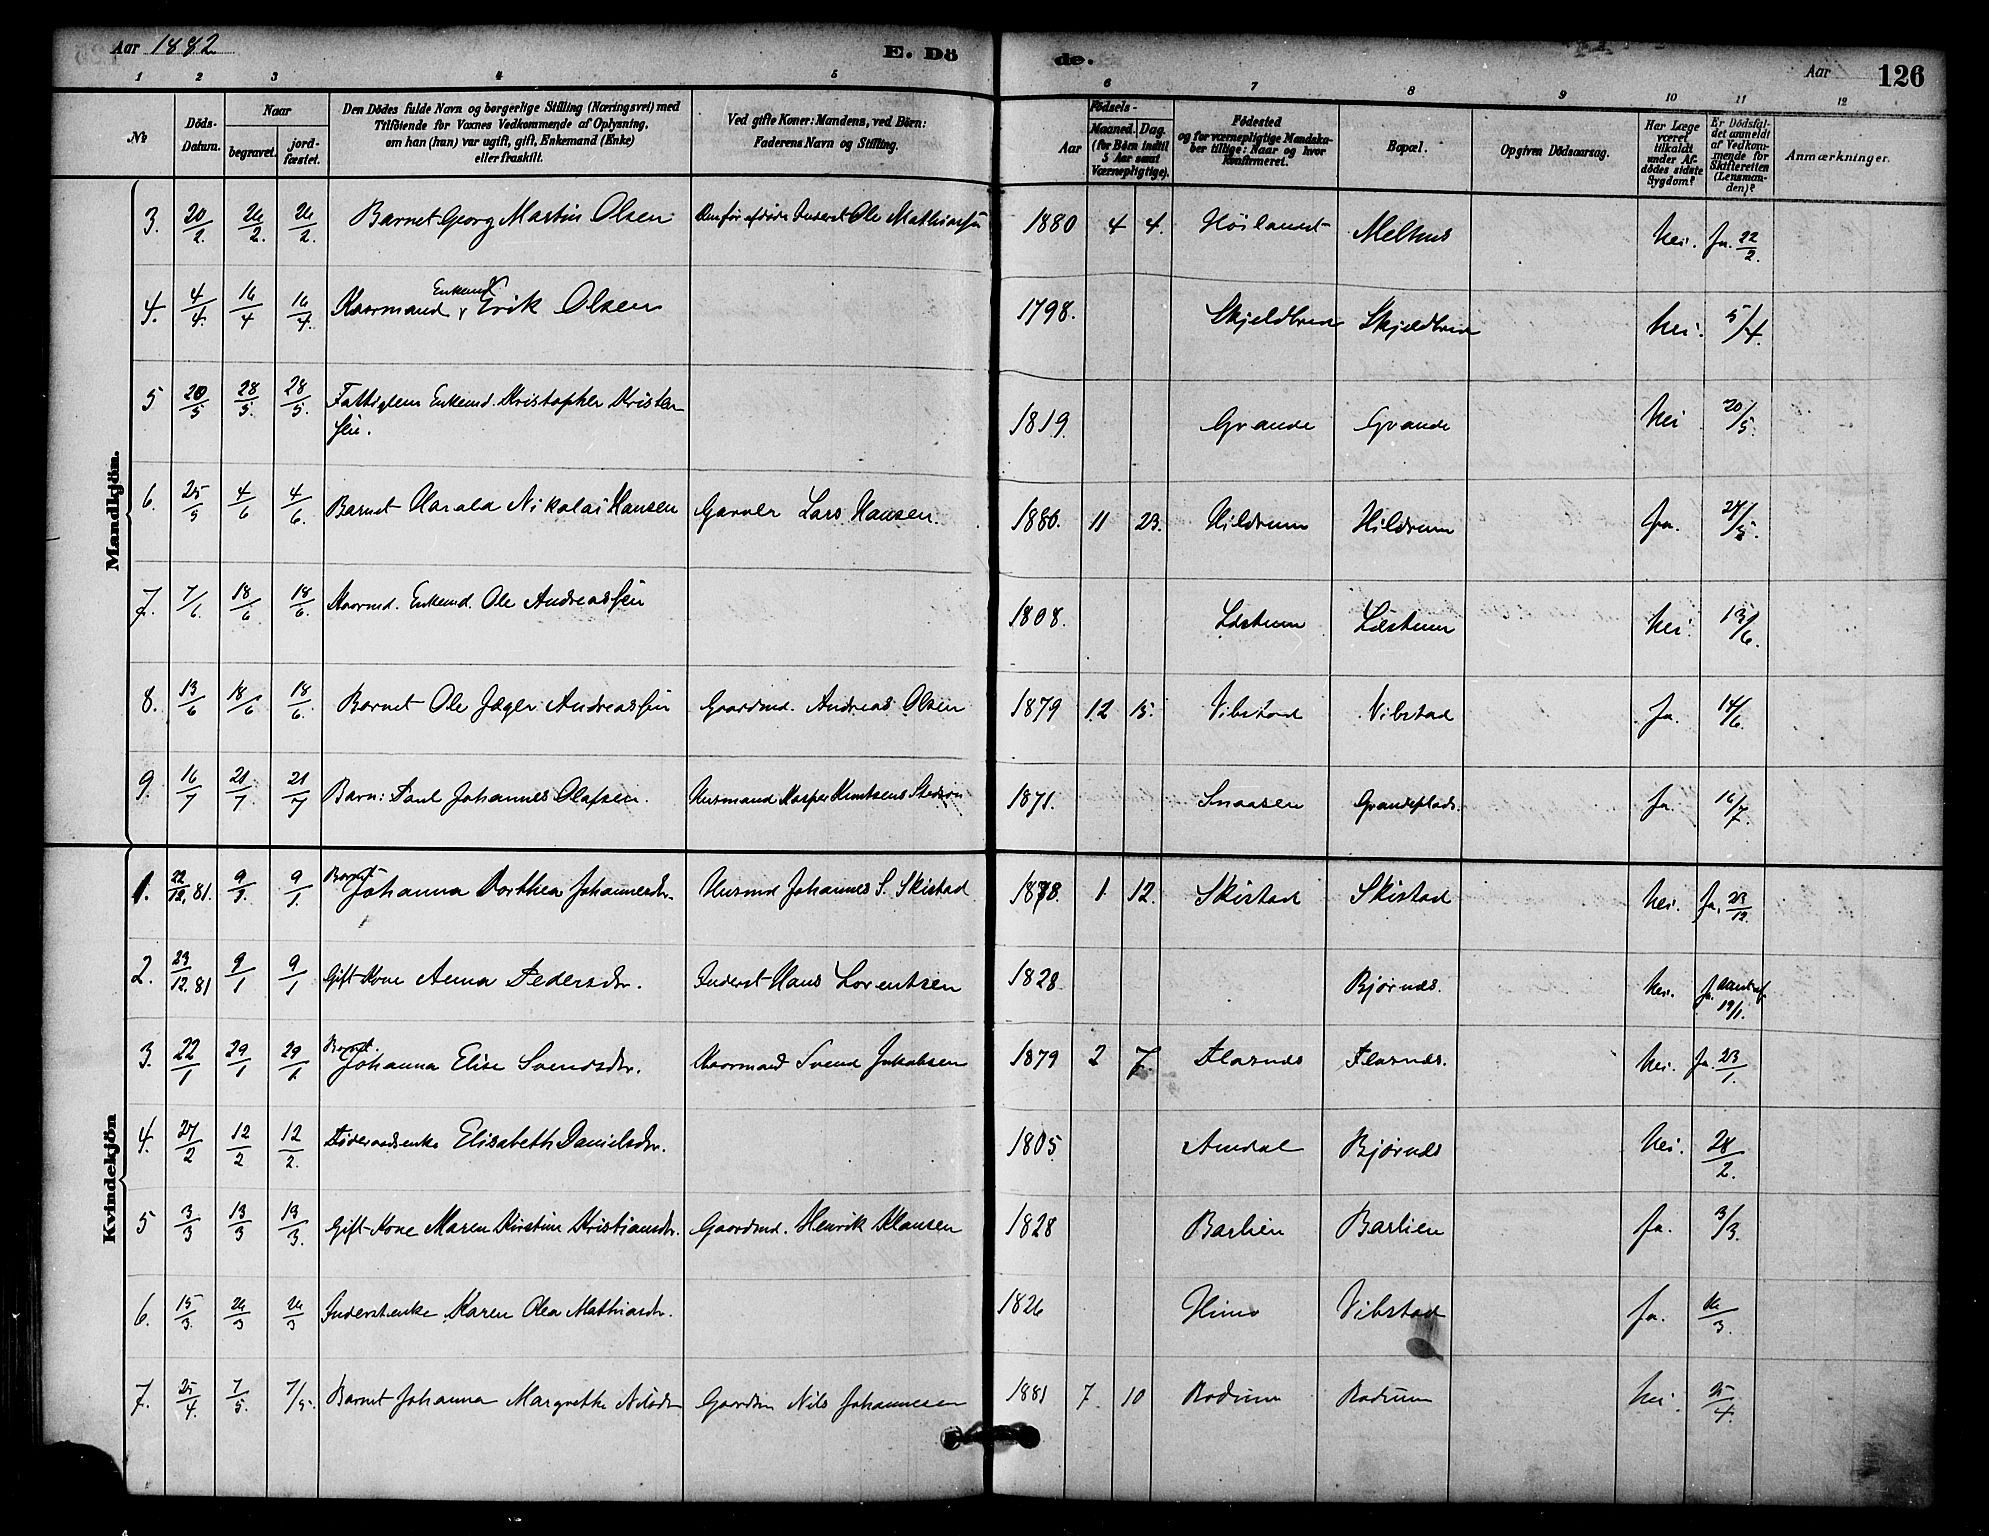 Aar 1882
E. Döde.
Aar
126
1 2 3 4 5 6 7 8 9 10 11 12
No
Döds-Datum.
Naar
begravet.
jord-fæstet.
Den Dödes fulde Navn og borgerlige Stilling (Næringsvei) med
Tilföiende for Voxnes Vedkommende af Oplysning,
om han (hun) var ugift, gift, Enkemand (Enke)
eller fraskilt.
Ved gifte Koner: Mandens, ved Börn:
Faderens Navn og Stilling.
Födsels-
Aar
Maaned. Dag.
(for Börn indtil
5 Aar samt
Værnepligtige).
Födested
og for værnepligtige Mandska-
ber tillige: Naar og hvor
Konfirmeret.
Bopæl.
Opgiven Dödsaarsag.
Har Læge
været
tilkaldt
under Af-
dödes sidste
Sygdom?
Er Dödsfal-
det anmeldt
af Vedkom-
mende for
Skifteretten
(Lensman-
den)?
Anmærkninger.
Mandkjön.
3. 20/2. 26/2. 26/2. Barnet Georg Martin Olsen Inderst Ole Mathiassen 1880 4 4. Höilandt Melhus Nei. Ja. 22/2.
4. 4/4. 16/4 16/4. Kaarmand, Enkemd Erik Olsen 1798. Skjeldbred Skjeldbred Nei. 5/4.
5 20/5 28/5. 28/5. Enkemd. Kristopher Kristen
sen. 1819. Grande Grande Nei 20/5.
6. 25/5 4/6 4/6. Barnet Harald Nikolai Hansen Garver Lars Hansen. 1880. 11 23. Hildrum Hildrum Ja. 27/5.
7. 7/6. 18/6 18/6. Kaarmd. Enkemd. Ole Andreassen 1808. Løstum Nei. 13/6.
8. 13/6 18/6 18/6. Barnet Ole Jæger Andreassen Gaardmd. Andreas Olsen 1879 12 15. Vibstad Vibstad Ja. 14/6.
9. 16/7 21/7. 21/7 Barn: Paul Johannes Olafsen. Husmand Kasper Knutsens 1871. Snaasen Grandeplads. Ja. 16/7.
Kvindekjön
1. 22/12. 81. 9/1. 9/1. Barnet Johanna Dorthea Johannesdr. Husmd Johannes S. Skistad 1878. 1 12. Skistad Skistad Nei. Ja. 23/12.
2. 23/12. 81 9/1 9/1 Gift Kone Anna Pedersdr. Inderst Hans Lorentsen 1828. Bjørnes. Nei. Ja. 19/1.
3. 22/1 29/1 29/1. Barnet Johanna Elise Svendsdr. Kaarmand Svend Jakobsen 1879 2 7. Flasnes Flasnes. Nei. Ja. 23/1.
4. 27/2 12/2 12/2. Föderaadsenke Elisabeth Danielsdr. 1805. Amdal Bjørnes Nei. 28/2.
5 3/3 13/3 13/3. Gift Kone Maren Kirstine Kristiansdr. Gaardmd. Henrik Klausen 1828 Barlien Barlien Ja. 3/3.
6. 15/3. 26/3 26/3 Inderstenke Karen Olea Mathiasdr. 1826 Himo Vibstad Ja. 16/3.
7. 25/4. 7/5. 7/5. Barnet Johanna Margrethe Nilsdr Gaardm Nils Johannesen 1881 7. 10 Rodum Rodum Nei. 25/4.